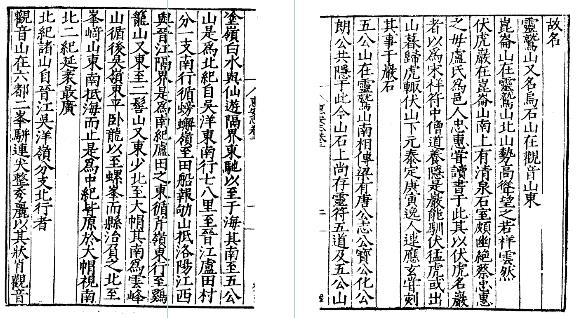 塗嶺白水與仙遊隔界東馳以至于海其南至五公
山是為北紀自吳洋東南行七八里至晉江盧田村
分一支南行循螃蠏嶺至田船報劬山抵洛陽江西
與晉江隔界是為南紀盧田之東循芹嶺東行至鷄
籠山又東至二髻山又東少北至大帽其南為雲峰
山循後吳嶺東平臥龍以至螺峯而縣治負之北至
峯崎山東南抵海而止是為中紀皆原於大帽視南
北二紀延袤最廣
北紀諸山自晉江吳洋嶺分支北行者
觀音山在六都二峯駢連尖整秀麗以其狀肖觀音
故名
靈鷲山又名烏石山在觀音山東
崑崙山在靈鷲山北山勢高聳望之若祥雲然
伏虎巖在崑崙山南上有清泉石室頗幽絕蔡忠惠
之母盧氏為邑人忠惠甞讀書于此其以伏虎名巖
者以為宋祥符中僧道養隱是巖能馴伏猛虎或出
山暮歸虎輙伏山下元泰定庚寅逸人逵應玄甞刻
其事于巖石
五公山在靈鷲山南相傳梁有唐公志公寶公化公
朗公共隱于此今山石上尚存靈符五道及五公山